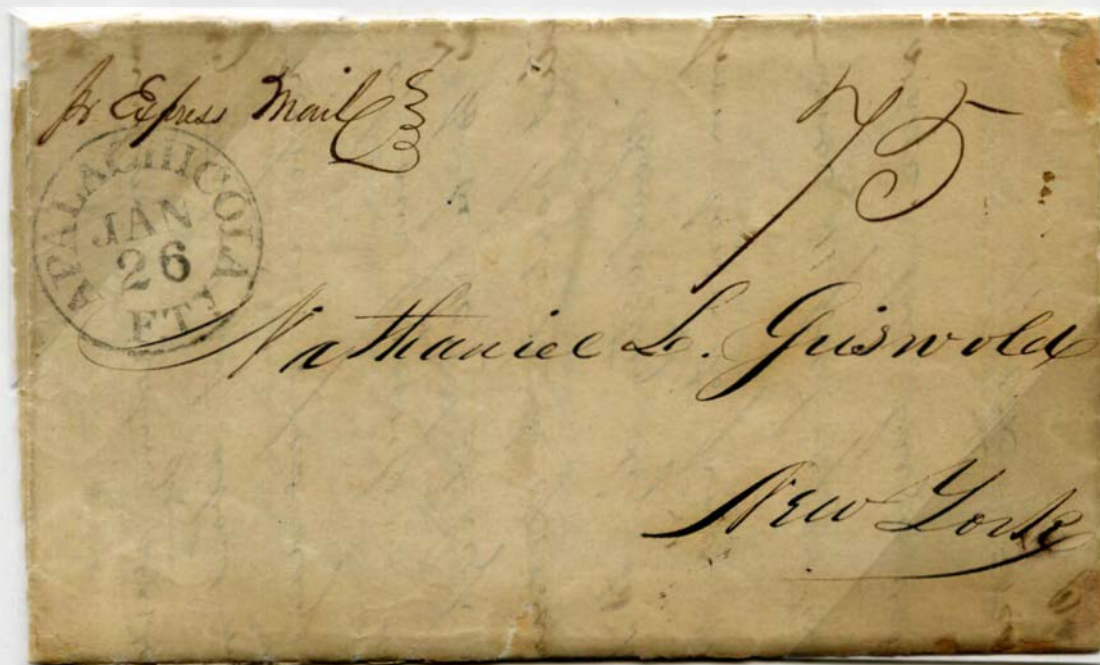 pr Express Mail
75
APALACHICOLA
JAN
26
FT.
Nathaniel L. Griswold
New York